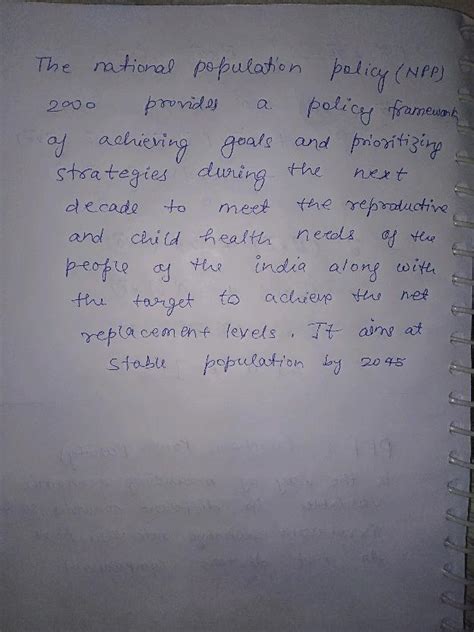 The national population policy (NPP)
2000 provides a policy framework
of achieving goals and prioritizing
strategies during the next
decade to meet the reproductive
and child health needs of the
people of the india along with
the target to achieve the net
replacement levels. It aims at
stable population by 2045